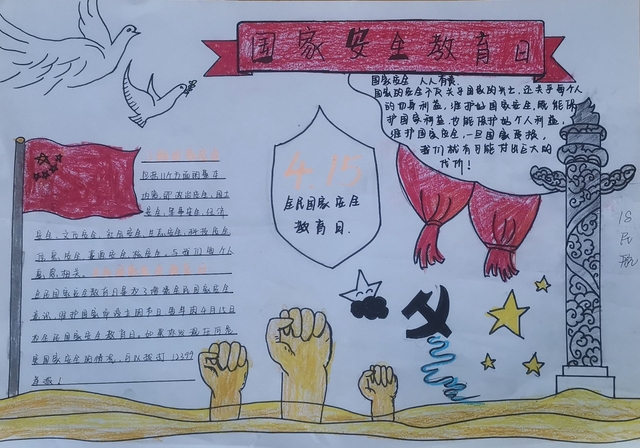 国家安全教育日
国家安全 人人有责
国家的安全不仅关乎国家的领土,还关乎每个人
的切身利益,维护好国家安全,既能保
护国家利益,也能保护好个人利益,
维护国家安全,一旦国家
我们就有可能付出巨大的
代价!
4.15
全民国家安全
教育日.
内容,即政治安全,国土
安全,军事安全,经济
安全,文化安全,社会安全,生态安全,科技安全
息息相关.
全民国家安全教育日是为了增强全民国家安全
意识,维护国家安全设立的节日,每年的4月15日
为全民国家安全教育日.如果你发现任何危
害国家安全的情况,可以拨打12399
18